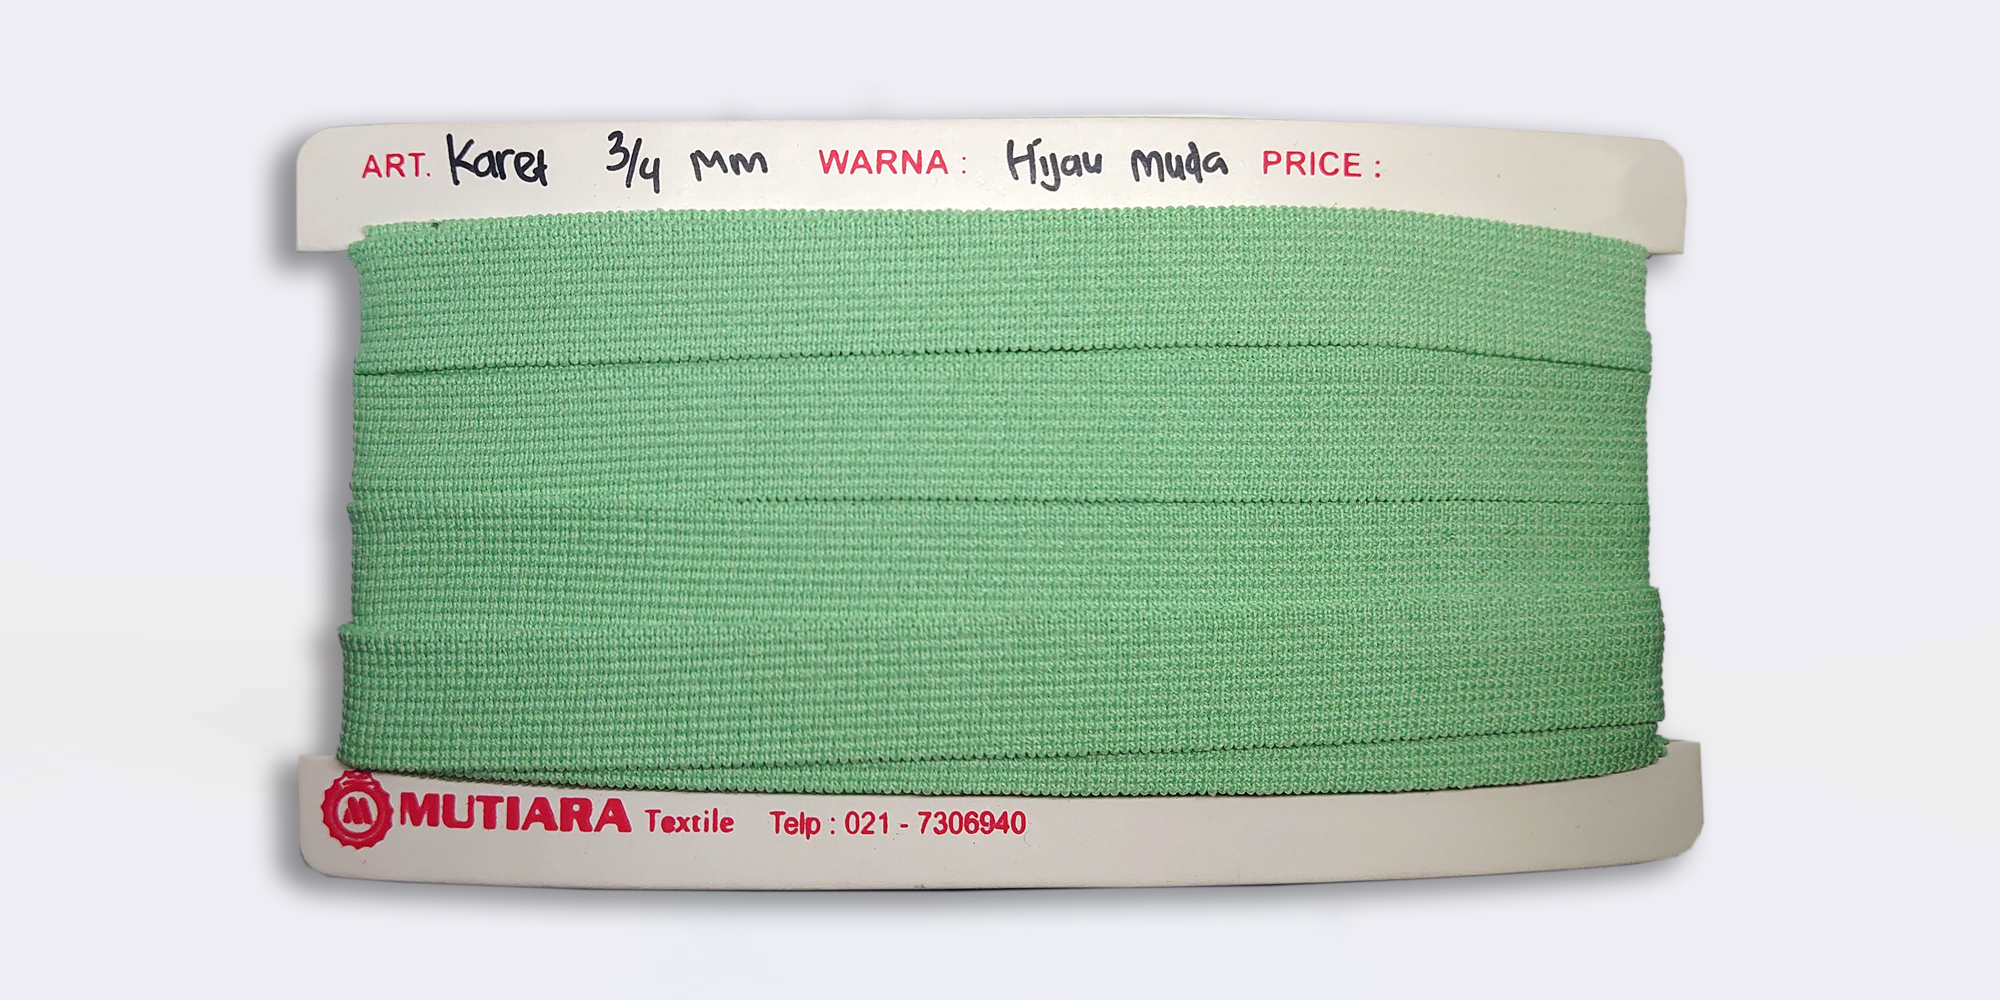 ART. Karet 3/4 MM WARNA : Hijau muda PRICE :
M MUTIARA Textile Telp : 021 - 7306940